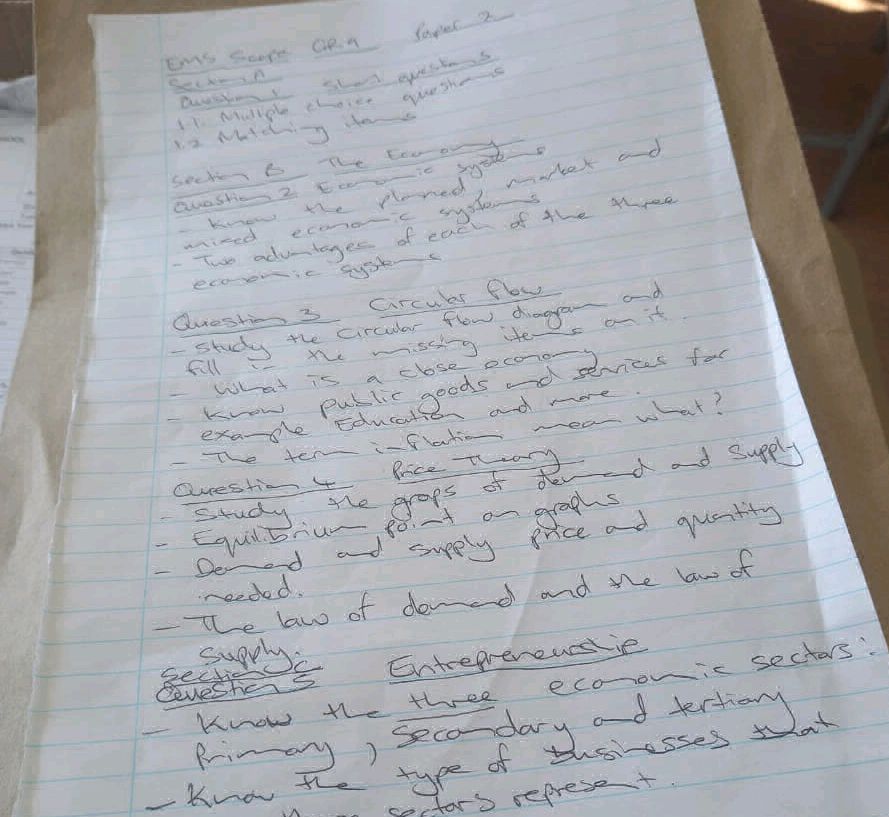 EMS Scope GR.9 Paper 2
Section A
Question 1 Short questions
1.1. Multiple choice questions
1.2 Matching items
Section B The Economy
Question 2 Economic systems
- Know the planned, market and
mixed economic systems
- Two advantages of each of the three
economic systems
Question 3 Circular flow
- Study the circular flow diagram and
fill in the missing items on it.
- What is a close economy
- Know public goods and services for
example Education and more.
- The term inflation mean what?
Question 4 Price Theory
- Study the graps of demand and supply
- Equilibrium point on graphs
- Demand and supply price and quantity
needed.
- The law of demand and the law of
supply.
Section C Entrepreneurship
Question 5
- Know the three economic sectors:
Primary, secondary and tertiary
- Know the type of businesses that
sectors represent.